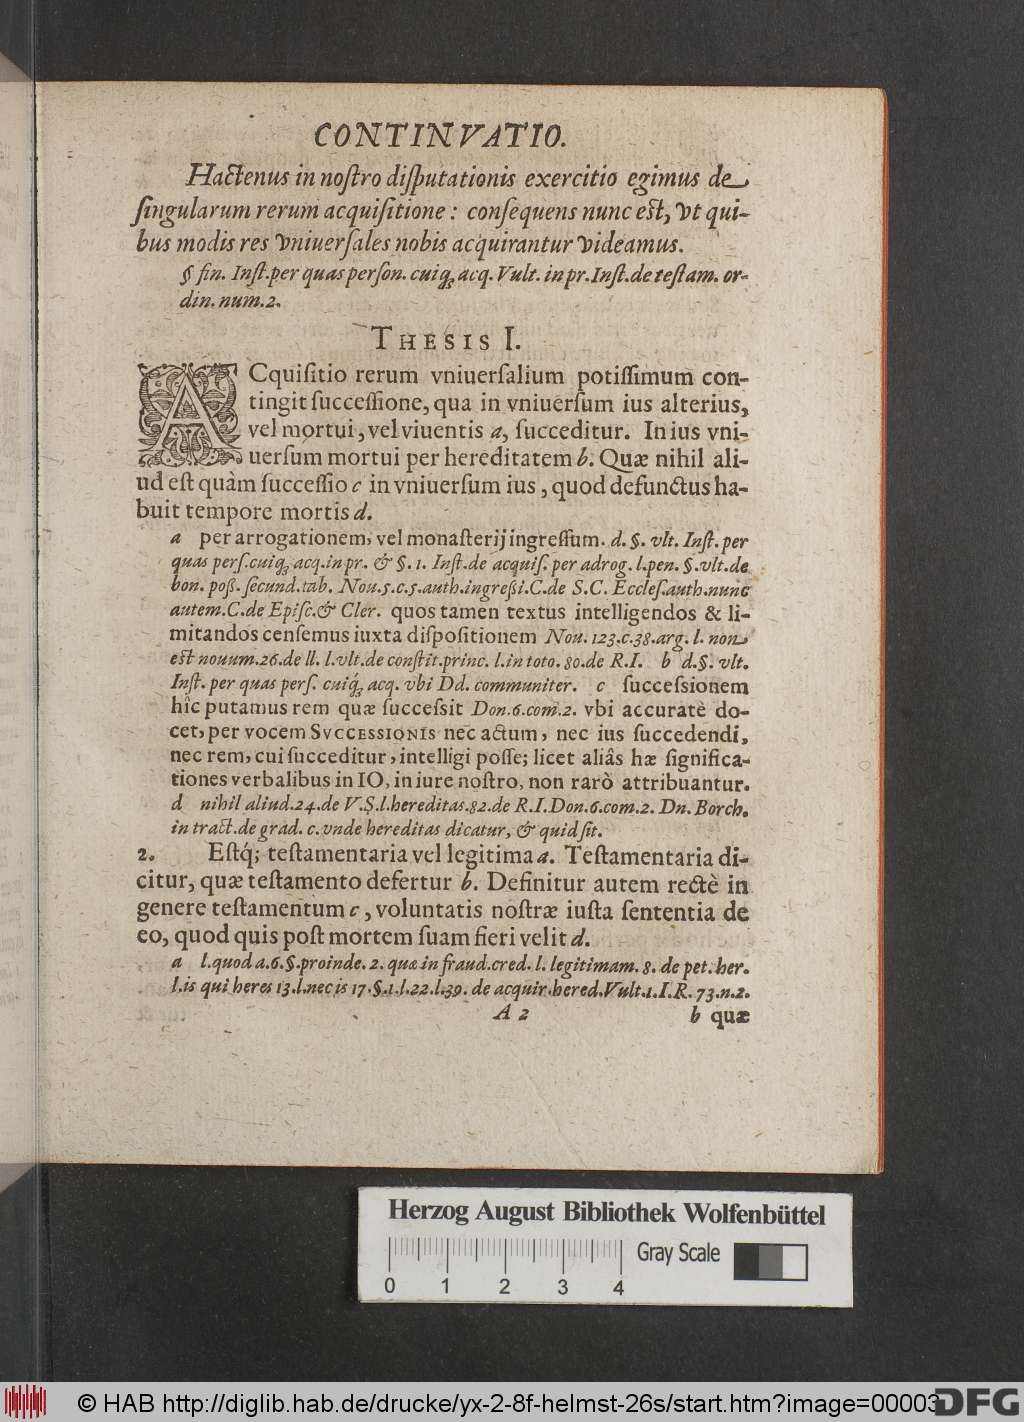 CONTINVATIO.
Hactenus in noſtro diſputationis exercitio egimus de
ſingularum rerum acquiſitione: conſequens nunc est, vt qui-
bus modis res vniuerſales nobis acquirantur videamus.
§ fin. Inſt. per quas perſon. cuiq; acq. Vult. in pr. Inſt. de teſtam. or-
din. num. 2.
THESIS I.
ACquiſitio rerum vniuerſalium potiſſimum con-
tingit ſucceſſione, qua in vniuerſum ius alterius,
vel mortui, vel viuentis a, ſucceditur. In ius vni-
uerſum mortui per hereditatem b. Quæ nihil ali-
ud eſt quàm ſucceſſio c in vniuerſum ius, quod defunctus ha-
buit tempore mortis d.
a per arrogationem, vel monaſterij ingreſſum. d. §. vlt. Inſt. per
quas perſ. cuiq; acq. in pr. & §. 1. Inſt. de acquiſ. per adrog. l. pen. §. vlt. de
bon. poß. ſecund. tab. Nou. 5. c. 5. auth. ingreßi. C. de S. C. Eccleſ. auth. nunc
autem. C. de Epiſc. & Cler. quos tamen textus intelligendos & li-
mitandos cenſemus iuxta diſpoſitionem Nou. 123. c. 38. arg. l. non
est nouum. 26. de ll. l. vlt. de conſtit. princ. l. in toto. 80. de R. I. b d. §. vlt.
Inſt. per quas perſ. cuiq́; acq. vbi Dd. communiter. c ſucceſsionem
hîc putamus rem quæ ſucceſsit Don. 6. com. 2. vbi accuratè do-
cet, per vocem SVCCESSIONIS nec actum, nec ius ſuccedendi,
nec rem, cui ſucceditur, intelligi poſſe; licet aliâs hæ ſignifica-
tiones verbalibus in IO, in iure noſtro, non rarò attribuantur.
d nihil aliud. 24. de V. S. l. hereditas. 82. de R. I. Don. 6. com. 2. Dn. Borch.
in tract. de grad. c. vnde hereditas dicatur, & quid ſit.
2. Eſtq́; teſtamentaria vel legitima a. Teſtamentaria di-
citur, quæ teſtamento defertur b. Definitur autem rectè in
genere teſtamentum c, voluntatis noſtræ iuſta ſententia de
eo, quod quis poſt mortem ſuam fieri velit d.
a l. quod a. 6. §. proinde. 2. quæ in fraud. cred. l. legitimam. 8. de pet. her.
l. is qui heres 13. l. nec is 17. §. 1. l. 22. l. 39. de acquir. hered. Vult. 1. I. R. 73. n. 2.
A 2 b quæ
Herzog August Bibliothek Wolfenbüttel
Gray Scale
0 1 2 3 4
© HAB http://diglib.hab.de/drucke/yx-2-8f-helmst-26s/start.htm?image=00003
DFG